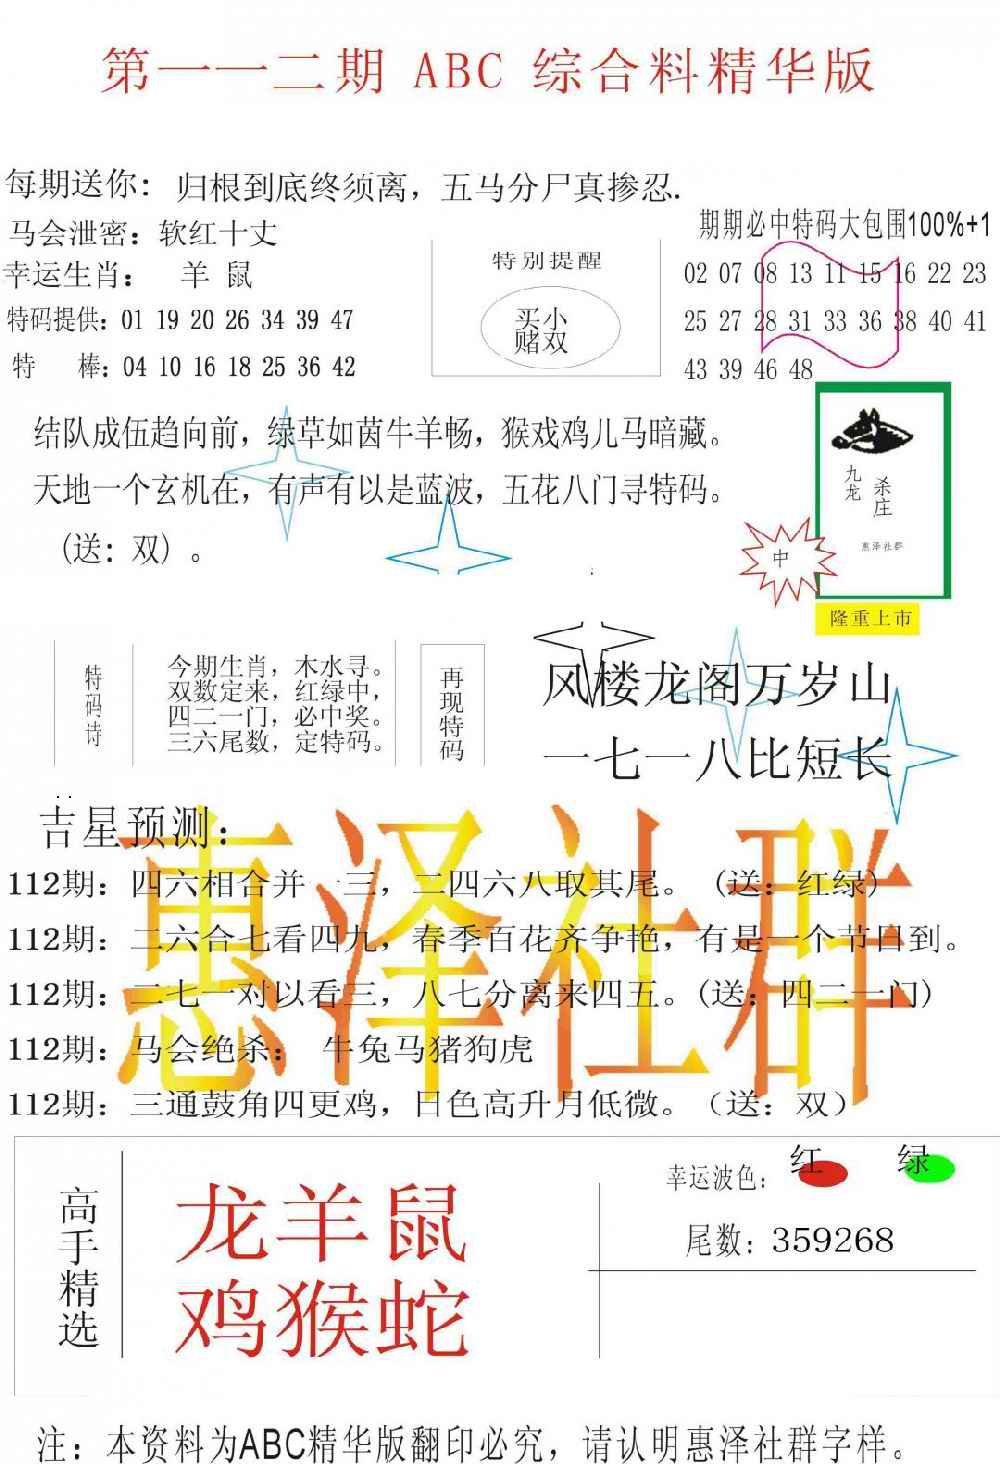 第一一二期 ABC 综合料精华版
每期送你: 归根到底终须离，五马分尸真掺忍.
马会泄密：软红十丈
幸运生肖： 羊 鼠
特码提供：01 19 20 26 34 39 47
特 棒：04 10 16 18 25 36 42
特别提醒
买小
赌双
期期必中特码大包围100%+1
02 07 08 13 11 15 16 22 23
25 27 28 31 33 36 38 40 41
43 39 46 48
结队成伍趋向前，绿草如茵牛羊畅，猴戏鸡儿马暗藏。
天地一个玄机在，有声有以是蓝波，五花八门寻特码。
(送：双) 。
九龙
杀庄
惠泽社群
中
隆重上市
特码诗
今期生肖，木水寻。
双数定来，红绿中，
四二一门，必中奖。
三六尾数，定特码。
再现特码
风楼龙阁万岁山
一七一八比短长
吉星预测：
112期：四六相合并一三，二四六八取其尾。(送：红绿)
112期：二六合七看四九，春季百花齐争艳，有是一个节日到。
112期：二七一对以看三，八七分离来四五。(送：四二一门)
112期：马会绝杀： 牛兔马猪狗虎
112期：三通鼓角四更鸡，日色高升月低微。（送：双）
惠泽社群
高手精选
龙羊鼠
鸡猴蛇
幸运波色： 红 绿
尾数：359268
注：本资料为ABC精华版翻印必究，请认明惠泽社群字样。